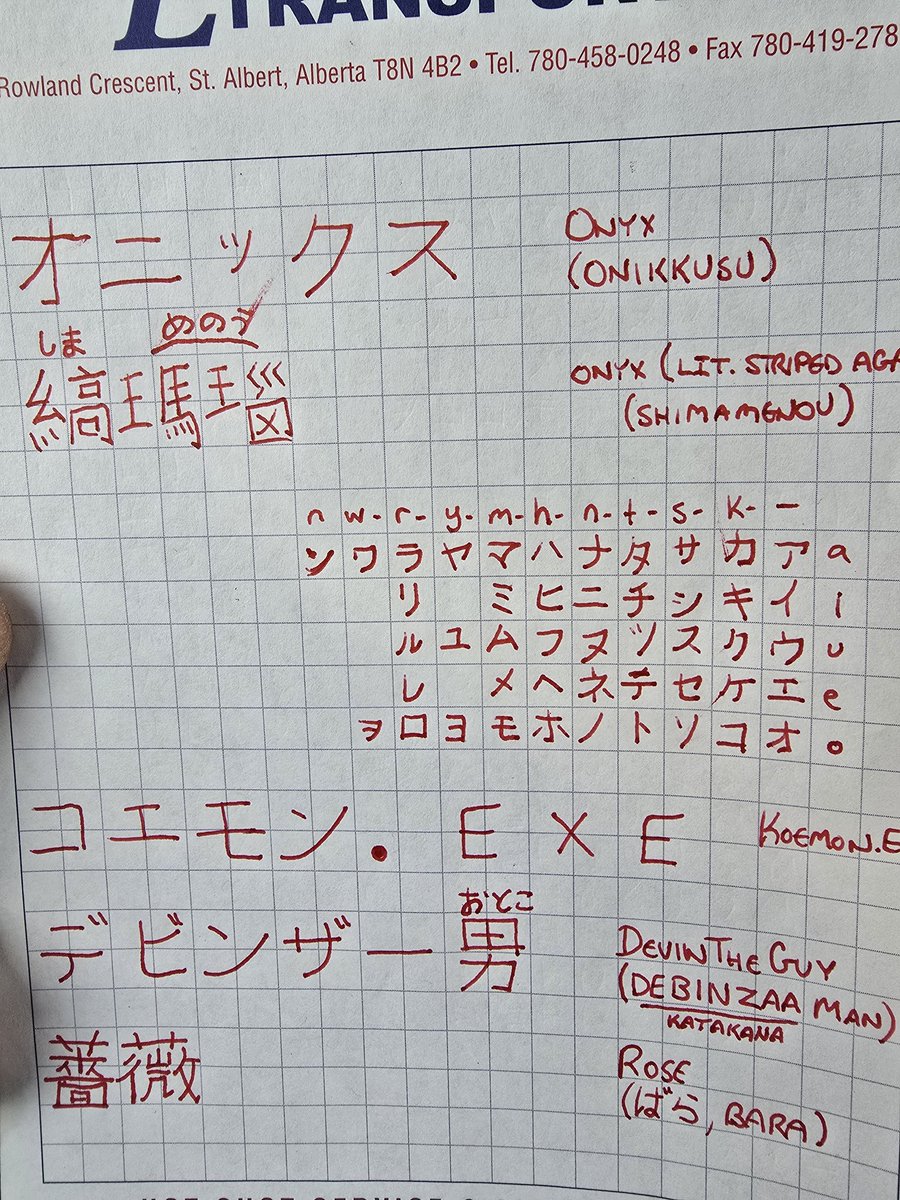 TRANSPOR
Rowland Crescent, St. Albert, Alberta T8N 4B2 • Tel. 780-458-0248 • Fax 780-419-278
オニックス ONYX
(ONIKKUSU)
しま めのう
縞瑪瑙 ONYX (LIT. STRIPED AGA
(SHIMAMENOU)
n w- r- y- m- h- n- t- s- K- —
ンワラヤマハナタサカア a
リ ミヒニチシキイ i
ルユムフヌツスクウ u
レ メヘネテセケエ e
ヲロヨモホノトソコオ o
コエモン.EXE KOEMON.E
おとこ
デビンザー男 DEVINTHEGUY
(DEBINZAA MAN)
KATAKANA
薔薇 ROSE
(ばら, BARA)